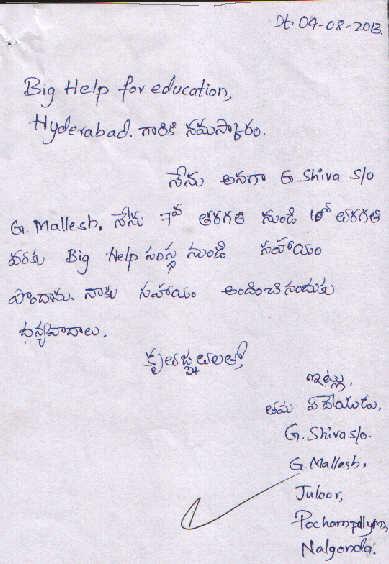 Dt. 04-08-2013.
Big Help for education,
Hyderabad. గారికి నమస్కారం.
నేను అనగా G. Shiva S/o
G. Mallesh. నేను 7వ తరగతి నుండి 10వ తరగతి
వరకు Big Help సంస్థ నుండి సహాయం
పొందాను. నాకు సహాయం అందించినందుకు
ధన్యవాదాలు.
కృతజ్ఞతలతో
ఇట్లు,
తమ విధేయుడు,
G. Shiva s/o.
G. Mallesh,
Juloor,
Pochampally(m),
Nalgonda.